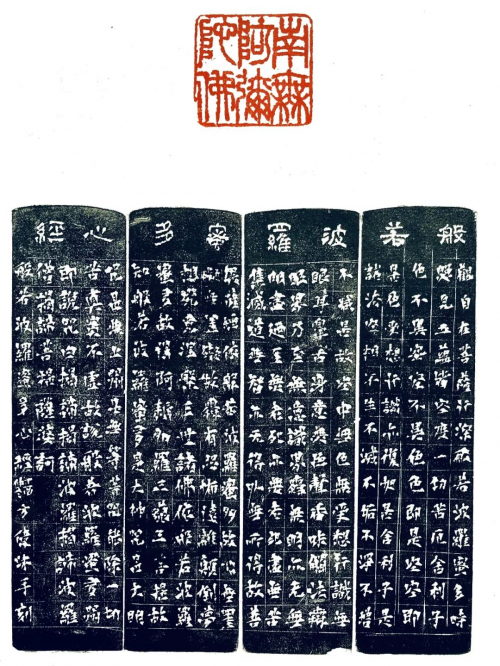 南無
阿彌
陀佛
般若
波羅
蜜多
心經
觀自在菩薩行深般若波羅蜜多時
照見五蘊皆空度一切苦厄舍利子
色不異空空不異色色即是空空即
是色受想行識亦復如是舍利子是
諸法空相不生不滅不垢不淨不增
不減是故空中無色無受想行識無
眼耳鼻舌身意無色聲香味觸法無
眼界乃至無意識界無無明亦無無
明盡乃至無老死亦無老死盡無苦
集滅道無智亦無得以無所得故菩
提薩埵依般若波羅蜜多故心無罣
礙無罣礙故無有恐怖遠離顛倒夢
想究竟涅槃三世諸佛依般若波羅
蜜多故得阿耨多羅三藐三菩提故
知般若波羅蜜多是大神咒是大明
咒是無上咒是無等等咒能除一切
苦真實不虛故說般若波羅蜜多咒
即說咒曰揭諦揭諦波羅揭諦波羅
僧揭諦菩提薩婆訶
般若波羅蜜多心經 沐手刻